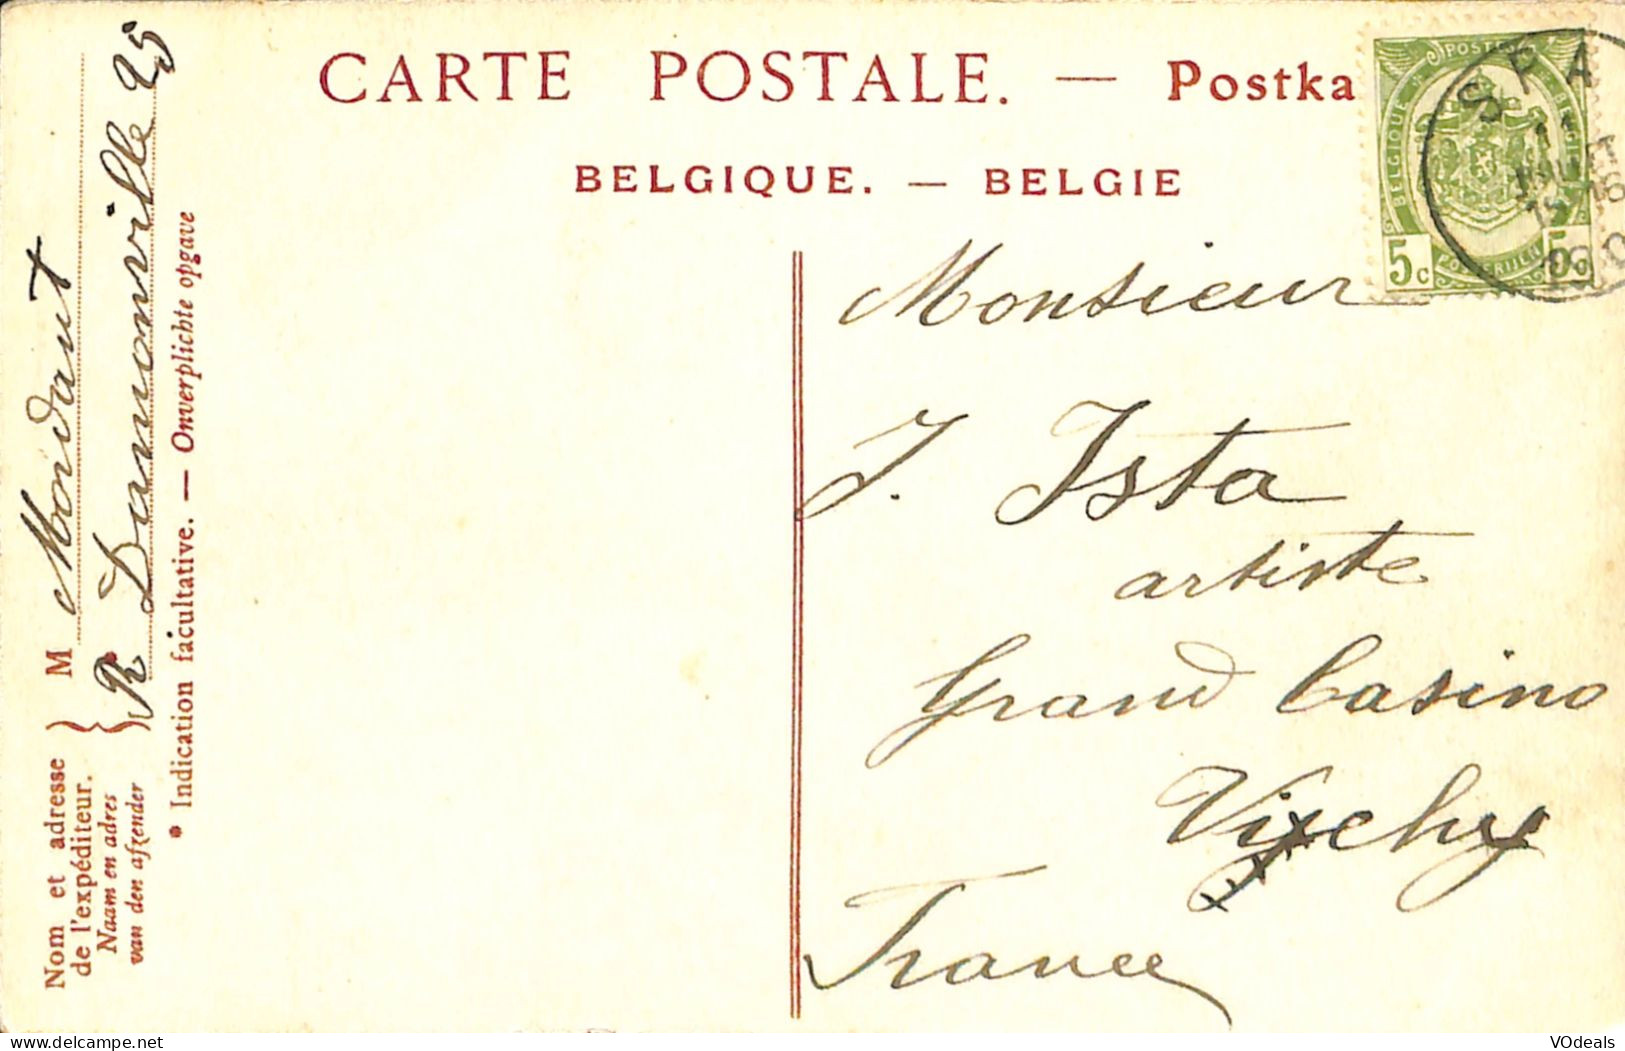 CARTE POSTALE. — Postka
BELGIQUE. — BELGIE
SPA
11
AOUT
15-16
POSTES
BELGIQUE
BELGIE
POSTERIJEN
5c
Monsieur
J. Ista
artiste
Grand Casino
Vichy
France
Nom et adresse
de l'expéditeur.
Naam en adres
van den afzender
M Mordant
R Dumonville 25
* Indication facultative. — Onverplichte opgave
VOdeals